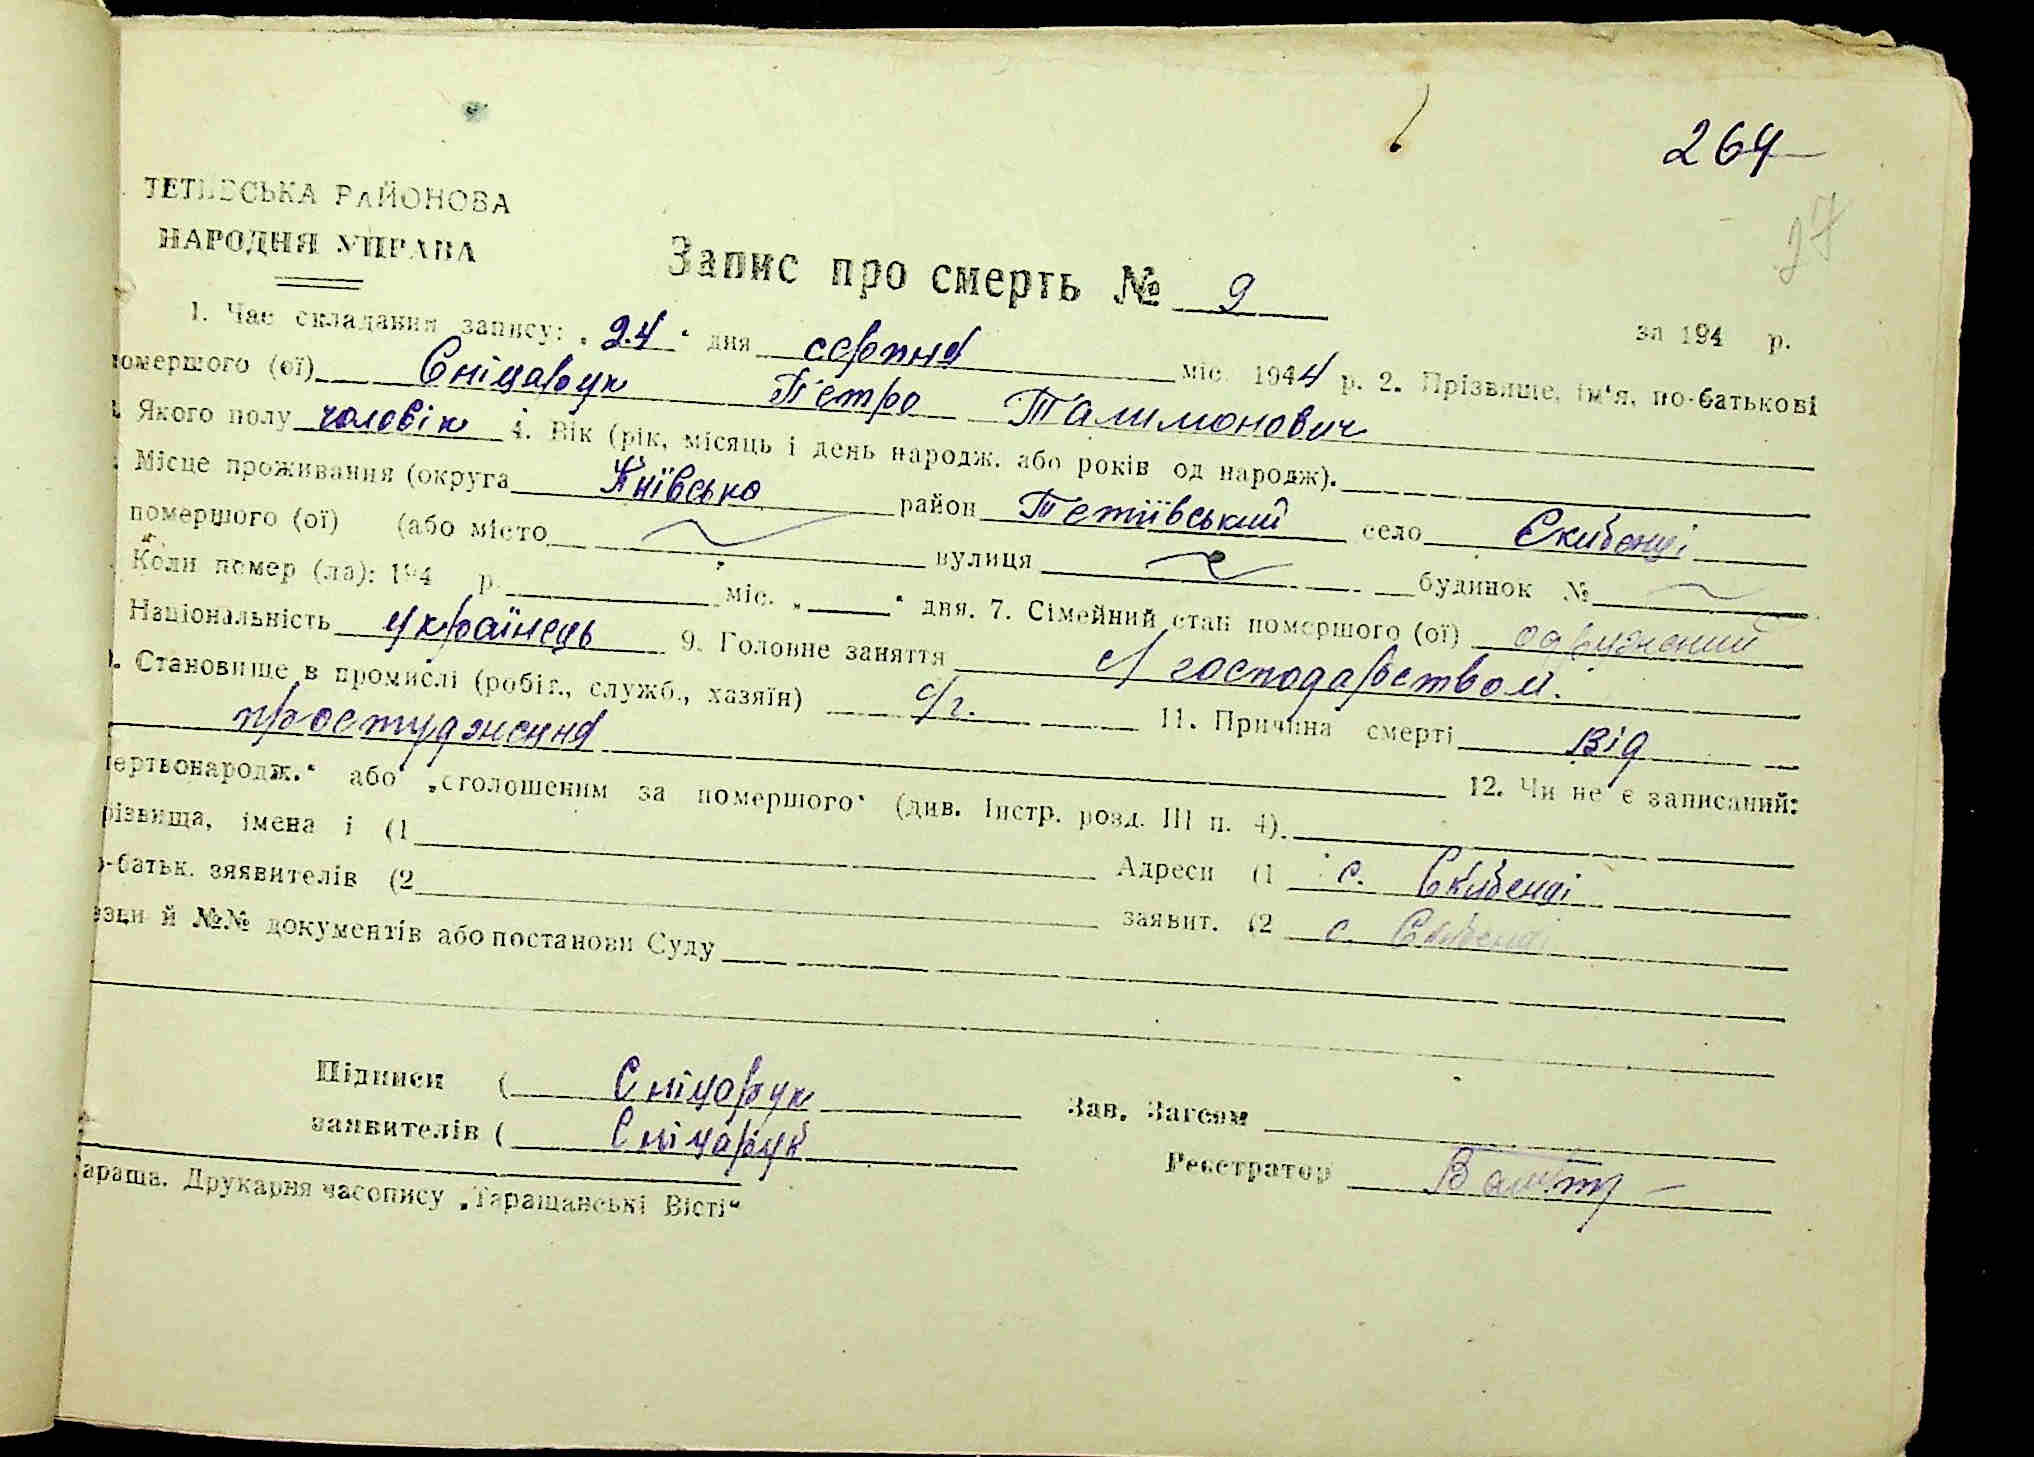 264
27
ТЕТІЇВСЬКА РАЙОНОВА
НАРОДНЯ УПРАВА
Запис про смерть № 9
за 194 р.
1. Час складання запису: „24“ дня серпня міс. 1944 р. 2. Прізвище, ім'я, по-батькові
помершого (ої) Сніцарук Петро Талимонович
Якого полу чоловік 4. Вік (рік, місяць і день народж. або років од народж).
Місце проживання (округа Київська район Тетіївський село Скибенці
помершого (ої) (або місто вулиця будинок №
Коли помер (ла): 194 р. міс. „ “ дня. 7. Сімейний стан помершого (ої) одружений
Національність українець 9. Головне заняття с/господарством.
Становище в промислі (робіт., служб., хазяїн) с/г. 11. Причина смерті від
простудження 12. Чи не є записаний:
мертвонародж.“ або „оголошеним за помершого“ (див. Інстр. розд. III п. 4).
різвища, імена і (1 Адреси (1 с. Скибенці
о-батьк. заявителів (2 заявит. (2 с. Скибенці
й №№ документів або постанови Суду
Підписи ( Сніцарук Зав. Загсом
заявителів ( Сніцарук Реєстратор
Тараща. Друкарня часопису „Таращанські Вісті“